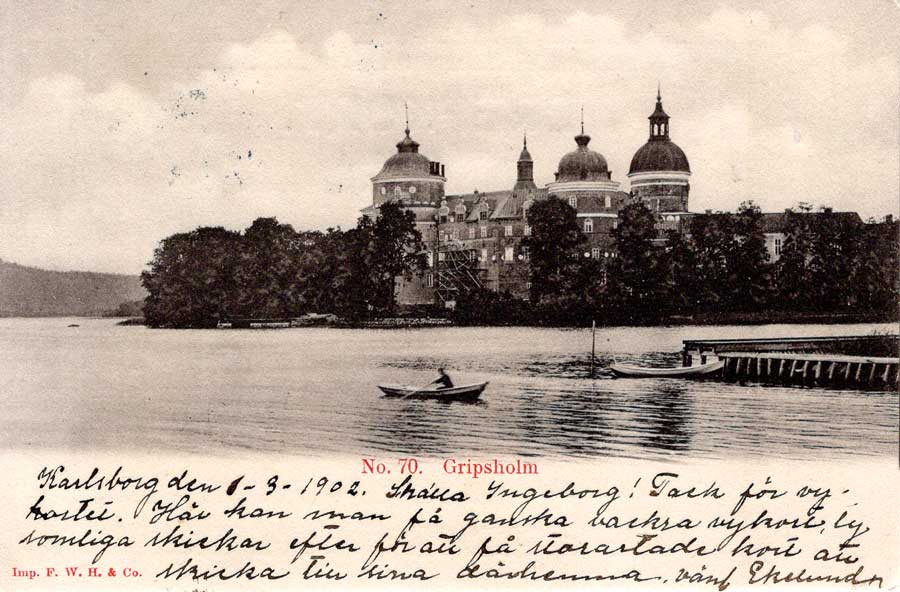 No. 70. Gripsholm
Karlsborg den 1-3-1902. Snälla Ingeborg! Tack för vy-
kortet. Här kan man få ganska vackra vykort, ty
somliga skickar efter för att få storartade kort att
Imp. F. W. H. & Co.
skicka till sina därhemma. vänl Ekelund